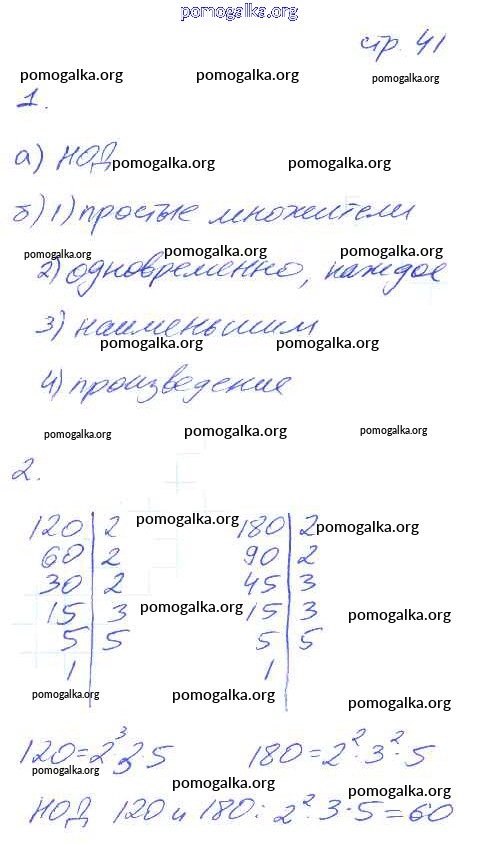 pomogalka.org
стр. 41
pomogalka.org pomogalka.org pomogalka.org
1.
а) НОД pomogalka.org pomogalka.org
б) 1) простые множители
pomogalka.org pomogalka.org pomogalka.org
2) одновременно, каждое
3) наименьшим
pomogalka.org pomogalka.org
4) произведение
pomogalka.org pomogalka.org pomogalka.org
2.
120 | 2 pomogalka.org 180 | 2 pomogalka.org
60 | 2 90 | 2
30 | 2 45 | 3
15 | 3 pomogalka.org 15 | 3 pomogalka.org
5 | 5 5 | 5
1 | 1 |
pomogalka.org pomogalka.org pomogalka.org
120=2³·3·5 180=2²·3²·5
pomogalka.org pomogalka.org pomogalka.org
НОД 120 и 180: 2²·3·5=60